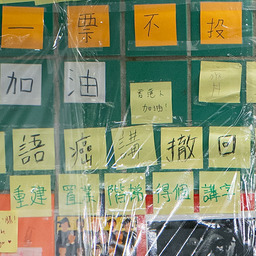 一票不投
加油
香港人
加油!
語癌講撤回
重建置業階梯得個講字